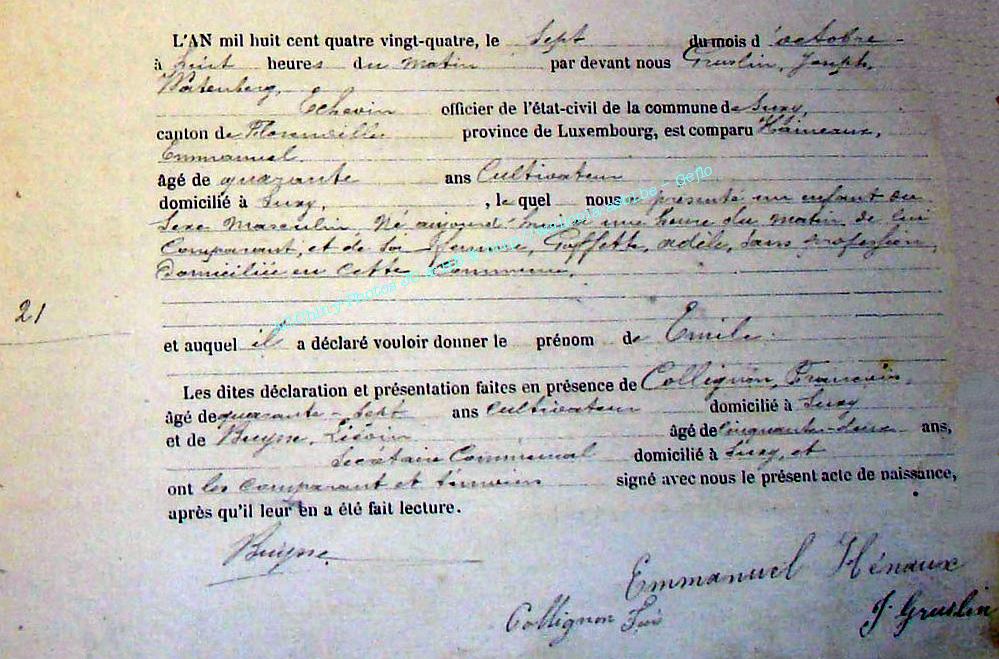 L'AN mil huit cent quatre vingt-quatre, le Sept du mois d'octobre
à huit heures du matin par devant nous Gruslin, Joseph,
Watenberg,
Echevin officier de l'état-civil de la commune de Suxy
canton de Florenville province de Luxembourg, est comparu Haineaux,
Emmanuel
âgé de quarante ans Cultivateur
domicilié à Suxy, , lequel nous a présenté un enfant du
Sexe Masculin, Né aujourd'hui à une heure du matin de lui
Comparant, et de sa femme, Goffette, adèle, sans profession,
domiciliée en cette Commune.
21
et auquel il a déclaré vouloir donner le prénom de Emile.
Les dites déclaration et présentation faites en présence de Collignon, François,
âgé de quarante-sept ans cultivateur domicilié à Suxy
et de Buysse, Liévin âgé de cinquante-deux ans,
Secrétaire Communal domicilié à Suxy, et
ont les comparant et témoins signé avec nous le présent acte de naissance,
après qu'il leur en a été fait lecture.
Buysse
Emmanuel Hénaux
Collignon Frs
J. Gruslin